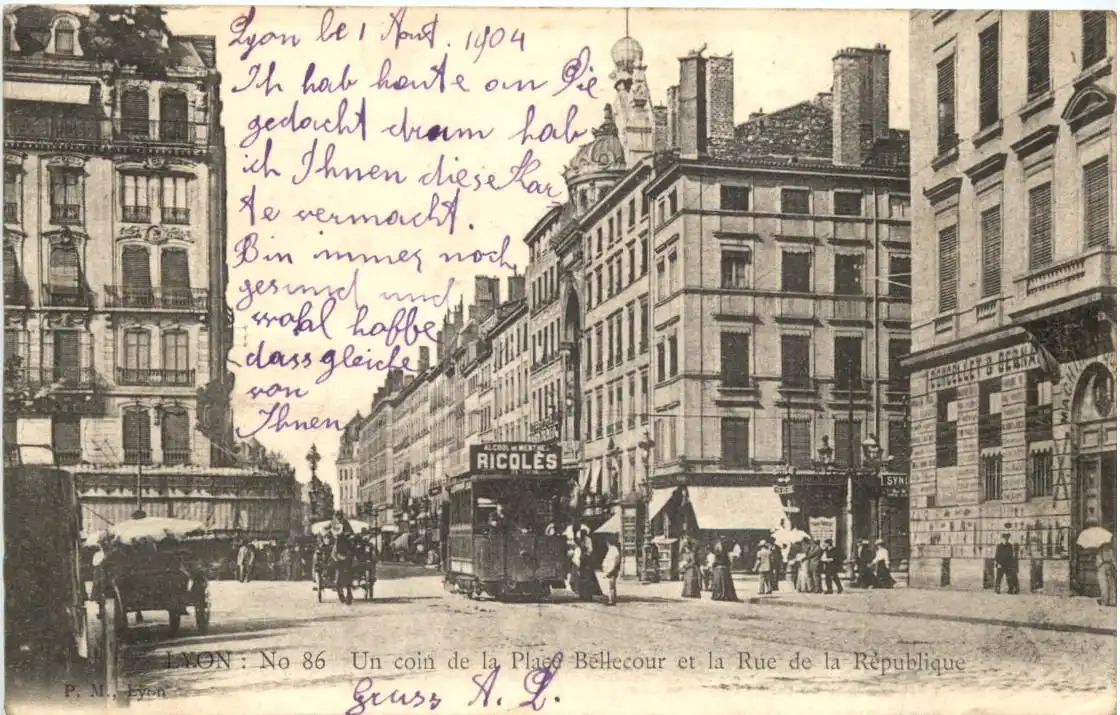 Lyon le 1 Aout. 1904
Ich hab haute an Sie
gedacht drum hab
ich Ihnen diese Kar
te vermacht.
Bin immer noch
gesund und
wohl hoffe
dassgleiche
von
Ihnen
ALCOOL DE MENTHE
RICQLÈS
SYND
LYON : No 86 Un coin de la Place Bellecour et la Rue de la République
P. M., Lyon
Gruss A. L.